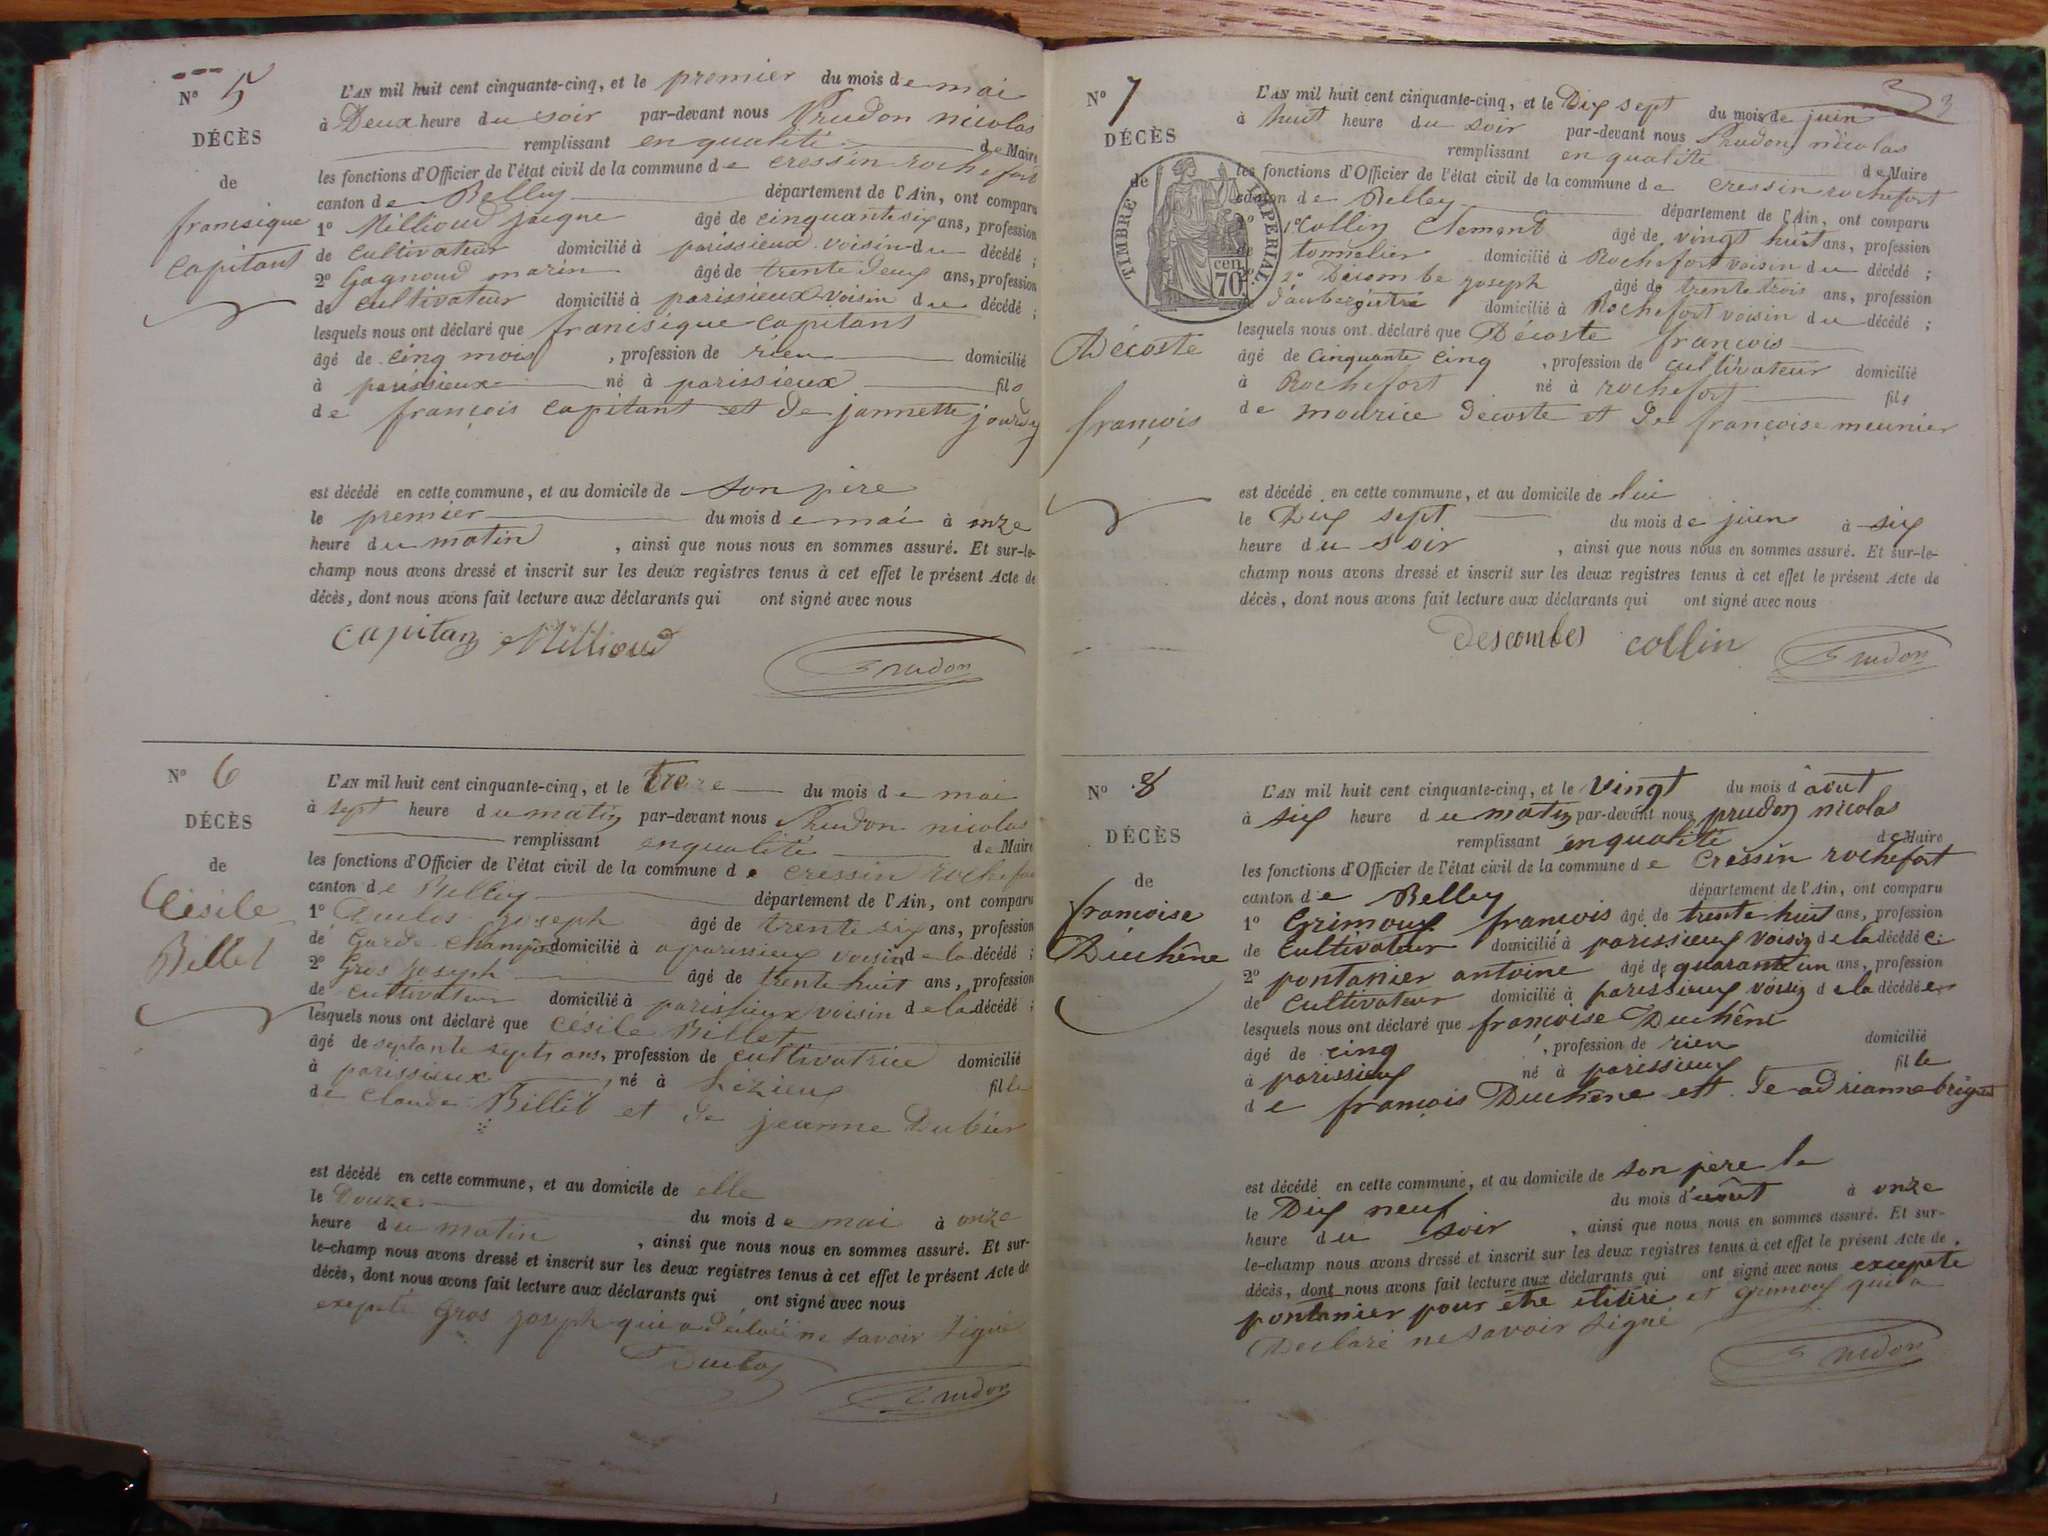 N° 5
DÉCÈS
de
francisque
capitant
L'AN mil huit cent cinquante-cinq, et le premier du mois de mai
à Deux heure du soir par-devant nous Prudon nicolas
remplissant en qualité de Maire
les fonctions d'Officier de l'état civil de la commune de cressin rochefort
canton de Belley département de l'Ain, ont comparu
1° Millioud jacque âgé de cinquante six ans, profession
de cultivateur domicilié à parissieux voisin du décédé ;
2° Gagnoud marin âgé de trente deux ans, profession
de cultivateur domicilié à parissieux voisin du décédé ;
lesquels nous ont déclaré que francisique capitant
âgé de cinq mois, profession de rien domicilié
à parissieux né à parissieux fils
de françois capitant et de jannette jourdy
est décédé en cette commune, et au domicile de son père
le premier du mois de mai à onze
heure du matin, ainsi que nous nous en sommes assuré. Et sur-le-
champ nous avons dressé et inscrit sur les deux registres tenus à cet effet le présent Acte de
décès, dont nous avons fait lecture aux déclarants qui ont signé avec nous
capitan Millioud Prudon
N° 6
DÉCÈS
de
Césile
Billet
L'AN mil huit cent cinquante-cinq, et le treze du mois de mai
à sept heure du matin par-devant nous Prudon nicolas
remplissant en qualité de Maire
les fonctions d'Officier de l'état civil de la commune de cressin rochefor
canton de Belley département de l'Ain, ont comparu
1° Duclos joseph âgé de trente six ans, profession
de Garde champ domicilié à aparissieux voisin de la décédé ;
2° Gros joseph âgé de trente huit ans, profession
de cultivateur domicilié à parissieux voisin de la décédé ;
lesquels nous ont déclaré que Césile Billet
âgé de septante septs ans, profession de cultivatrice domicilié
à parissieux, né à Lézieux fille
de claude Billet et de jeanne Dubür
est décédé en cette commune, et au domicile de elle
le Douze du mois de mai à onze
heure du matin, ainsi que nous nous en sommes assuré. Et sur-
le-champ nous avons dressé et inscrit sur les deux registres tenus à cet effet le présent Acte de
décès, dont nous avons fait lecture aux déclarants qui ont signé avec nous
exepeté Gros joseph qui a déclaré ne savoir signé
Duclos Prudon
N° 7
DÉCÈS
de
TIMBRE IMPÉRIAL
cen. 70
Décoste
françois
3
L'AN mil huit cent cinquante-cinq, et le Dix sept du mois de juin
à huit heure du soir par-devant nous Prudon nicolas
remplissant en qualité de Maire
les fonctions d'Officier de l'état civil de la commune de cressin rochefort
canton de Belley département de l'Ain, ont comparu
1° Collin Clement âgé de vingt huit ans, profession
de tonnelier domicilié à Rochefort voisin du décédé ;
2° Decombe joseph âgé de trente trois ans, profession
d'aubergiste domicilié à Rochefort voisin du décédé ;
lesquels nous ont déclaré que Décoste françois
âgé de cinquante cinq, profession de cultivateur domicilié
à Rochefort né à rochefort fils
de mourice decoste et de françoise meunier
est décédé en cette commune, et au domicile de lui
le Dix sept du mois de juin à six
heure du soir, ainsi que nous nous en sommes assuré. Et sur-le-
champ nous avons dressé et inscrit sur les deux registres tenus à cet effet le présent Acte de
décès, dont nous avons fait lecture aux déclarants qui ont signé avec nous
descombes collin Prudon
N° 8
DÉCÈS
de
francoise
Duchêne
L'AN mil huit cent cinquante-cinq, et le vingt du mois d'aout
à six heure du matin par-devant nous prudon nicolas
remplissant en qualité de Maire
les fonctions d'Officier de l'état civil de la commune de cressin rochefort
canton de Belley département de l'Ain, ont comparu
1° Grimoux francois âgé de trente huit ans, profession
de cultivateur domicilié à parissieux voisin de la décédé e ;
2° pontanier antoine âgé de quarante un ans, profession
de cultivateur domicilié à parissieux voisin de la décédé e
lesquels nous ont déclaré que françoise Duchêne
âgé de cinq, profession de rien domicilié
à parissieux né à parissieux fille
de francois Duchêne et de adrianne
est décédé en cette commune, et au domicile de son père le
le Dix neuf du mois d'août à onze
heure du soir, ainsi que nous nous en sommes assuré. Et sur-
le-champ nous avons dressé et inscrit sur les deux registres tenus à cet effet le présent Acte de
décès, dont nous avons fait lecture aux déclarants qui ont signé avec nous excepete
pontanier pour etre et grimoux qui a
Declaré ne savoir signé
Prudon